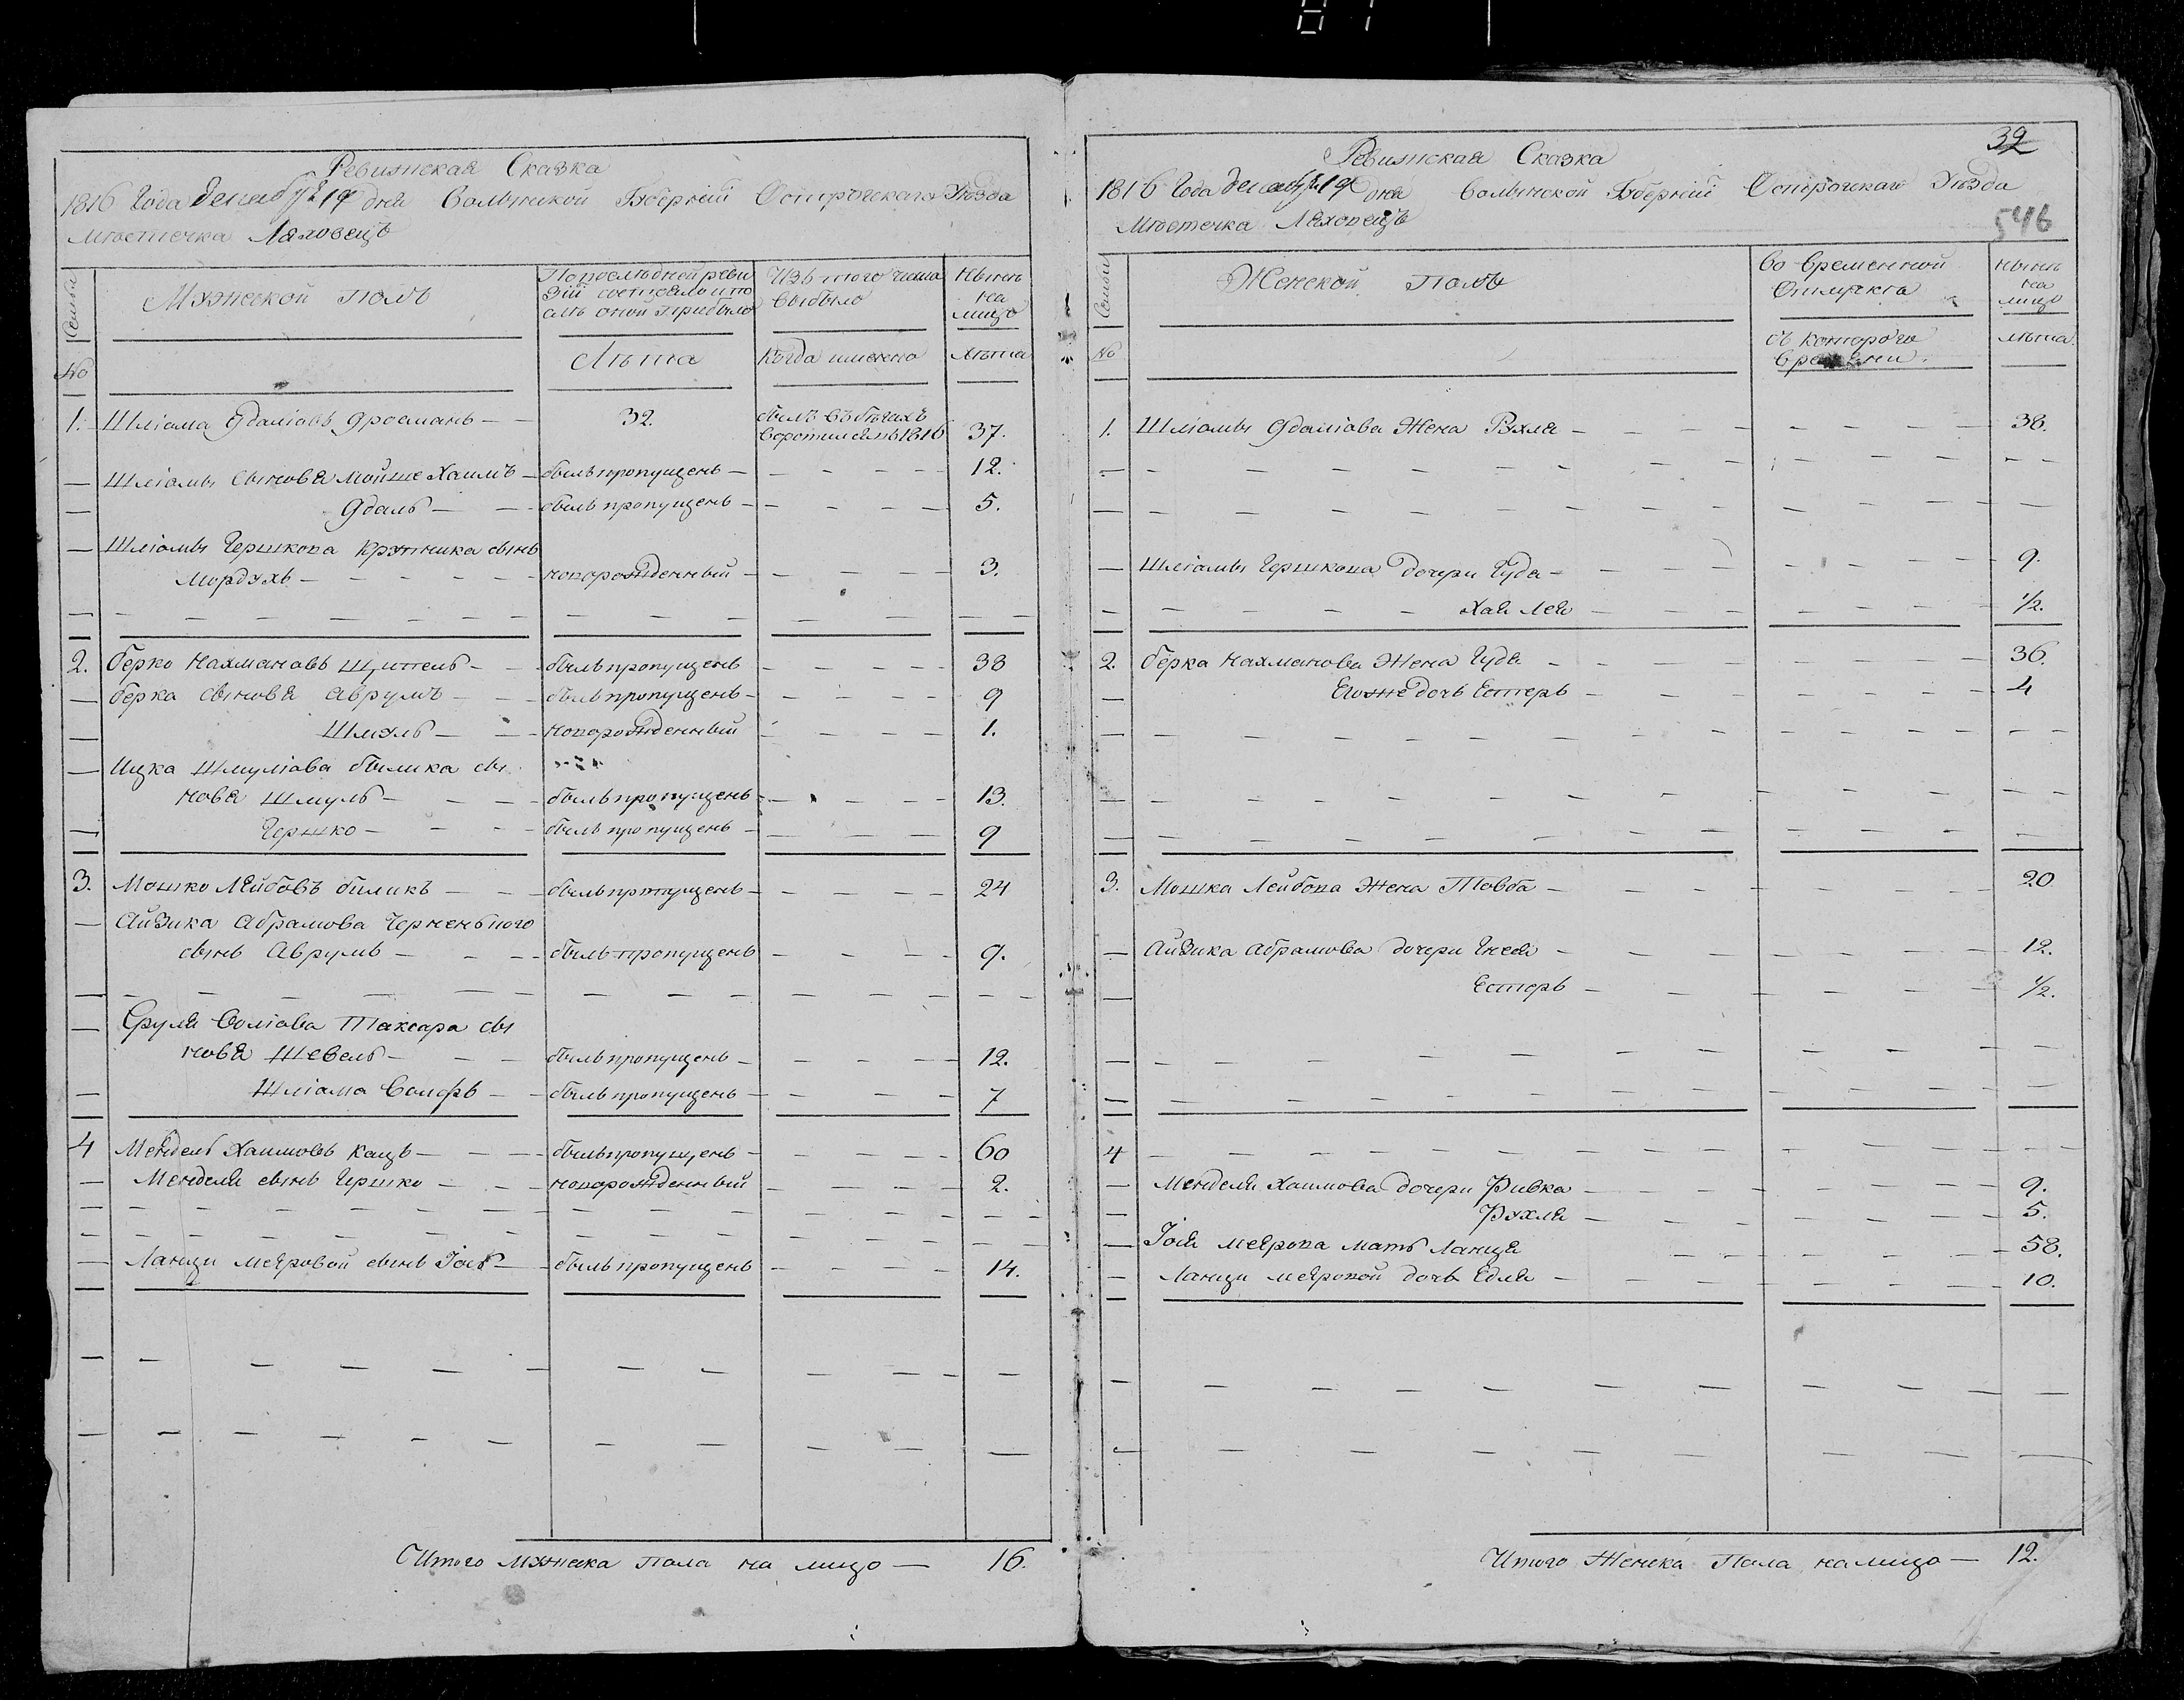 87
Ревижская Сказка
1816 Года декабря 19 дня Волынской Губернiй Острогского Уезда
Местечка Ляховецъ
Семьи
Мужеской полъ
По последней реви
зiй состояло и по
слъ оной прибыло
Изъ того числа
выбыло
Нынъ
на
лицо
No
Лъта
Когда именно
Лъта
1. Шлiома Эдалiовъ 32. былъ въ бегахъ
воротился въ 1816 37.
Шлiомы сынова Мойше Хаимъ былъ пропущенъ 12.
Эдаль былъ пропущенъ 5.
Шлiомы Гершкова Крутника сынъ
Мордухъ новорожденный 3.
2. Берко Нахмановъ Щ,ителъ былъ пропущенъ 38
Берка сыновя Аврумъ былъ пропущенъ 9
Шмуль новорожденный 1.
Ицка Шмулiова билика сы
новя Шмуль былъ пропущенъ 13.
Гершко былъ пропущенъ 9
3. Мошко Лейбовъ биликъ былъ пропущенъ 24
Айзика Абрамова Черненького
сынъ Аврумъ былъ пропущенъ 9.
Сруля Волiова Таксара сы
новя Шевель былъ пропущенъ 12.
Шлiома былъ пропущенъ 7
4 Мендель Хаимовъ Кацъ былъ пропущенъ 60
Менделя сынъ Гершко новорожденный 2.
Ланци Мееровой сынъ Iось былъ пропущенъ 14.
Итого мужска пола на лицо — 16.
32
Ревижская Сказка
1816 Года декабря 19 дня Волынской Губернiй Острогскаго Уезда
Местечка Ляховецъ
546
Семьи
Женской полъ
Во временной
Отлучкъ
Нынъ
на
лицо
No
съ котораго
времени.
лъта.
1. Шлiомы Эдалiова Жена Рухля 38.
Шлiомы Гершкова дочери Гудя 9.
Хая Лея 1/2.
2. Берка Нахманова Жена Гудя 36.
Егоже дочь Естеръ 4
3. Мошка Лейбова Жена Товба 20
Айзика Абрамова дочери Енеся 12.
Естеръ 1/2.
4
Менделя Хаимова дочери Ривка 9.
Рухля 5.
Iося Меерова мать Ланця 58.
Ланци Мееровой дочь Едля 10.
Итого Женска Пола на лицо — 12.